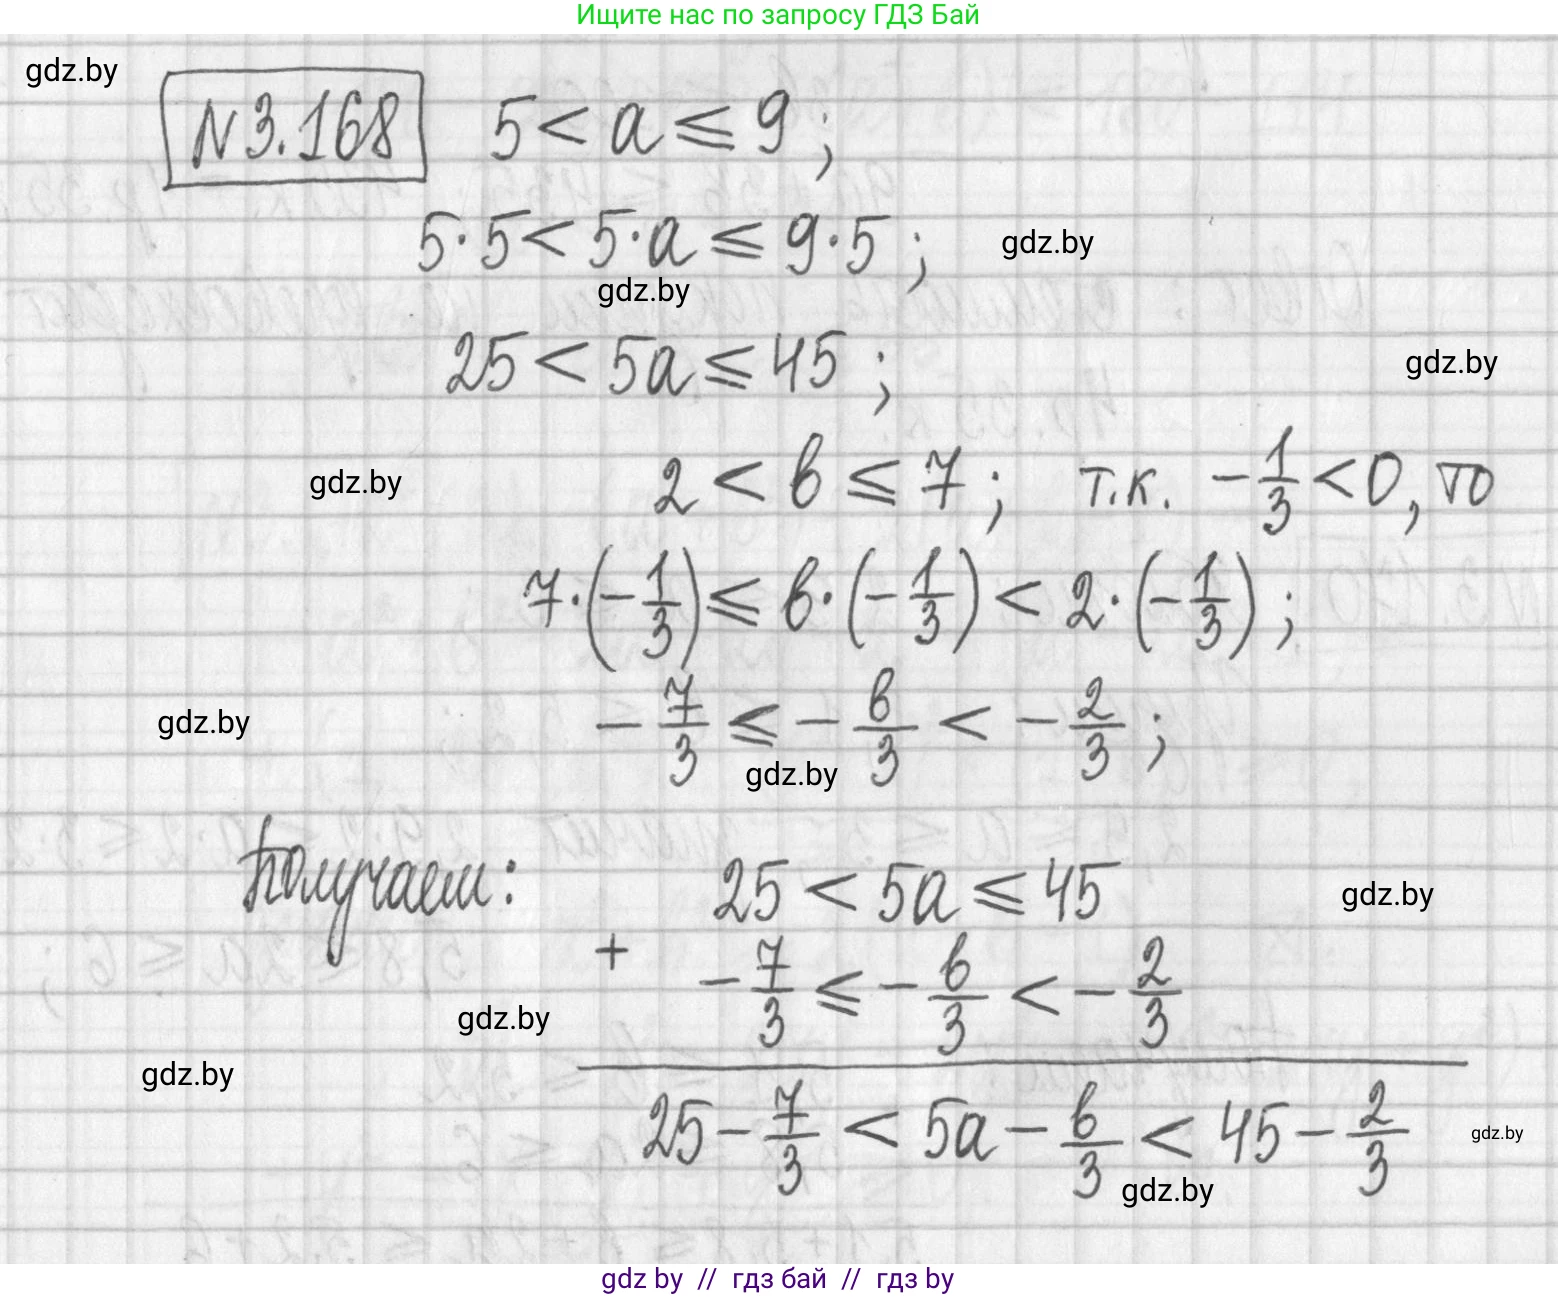 Ищите нас по запросу ГДЗ Бай
gdz.by
N3.168 5 < a ≤ 9 ;
5·5 < 5·a ≤ 9·5 ;
gdz.by
gdz.by
25 < 5a ≤ 45 ;
gdz.by
gdz.by
2 < b ≤ 7 ; т.к. -1/3 < 0, то
7·(-1/3) ≤ b·(-1/3) < 2·(-1/3) ;
gdz.by
-7/3 ≤ -b/3 < -2/3 ;
gdz.by
Получаем: 25 < 5a ≤ 45
gdz.by
+ -7/3 ≤ -b/3 < -2/3
gdz.by
gdz.by
25 - 7/3 < 5a - b/3 < 45 - 2/3
gdz.by
gdz.by
gdz by // гдз бай // гдз by